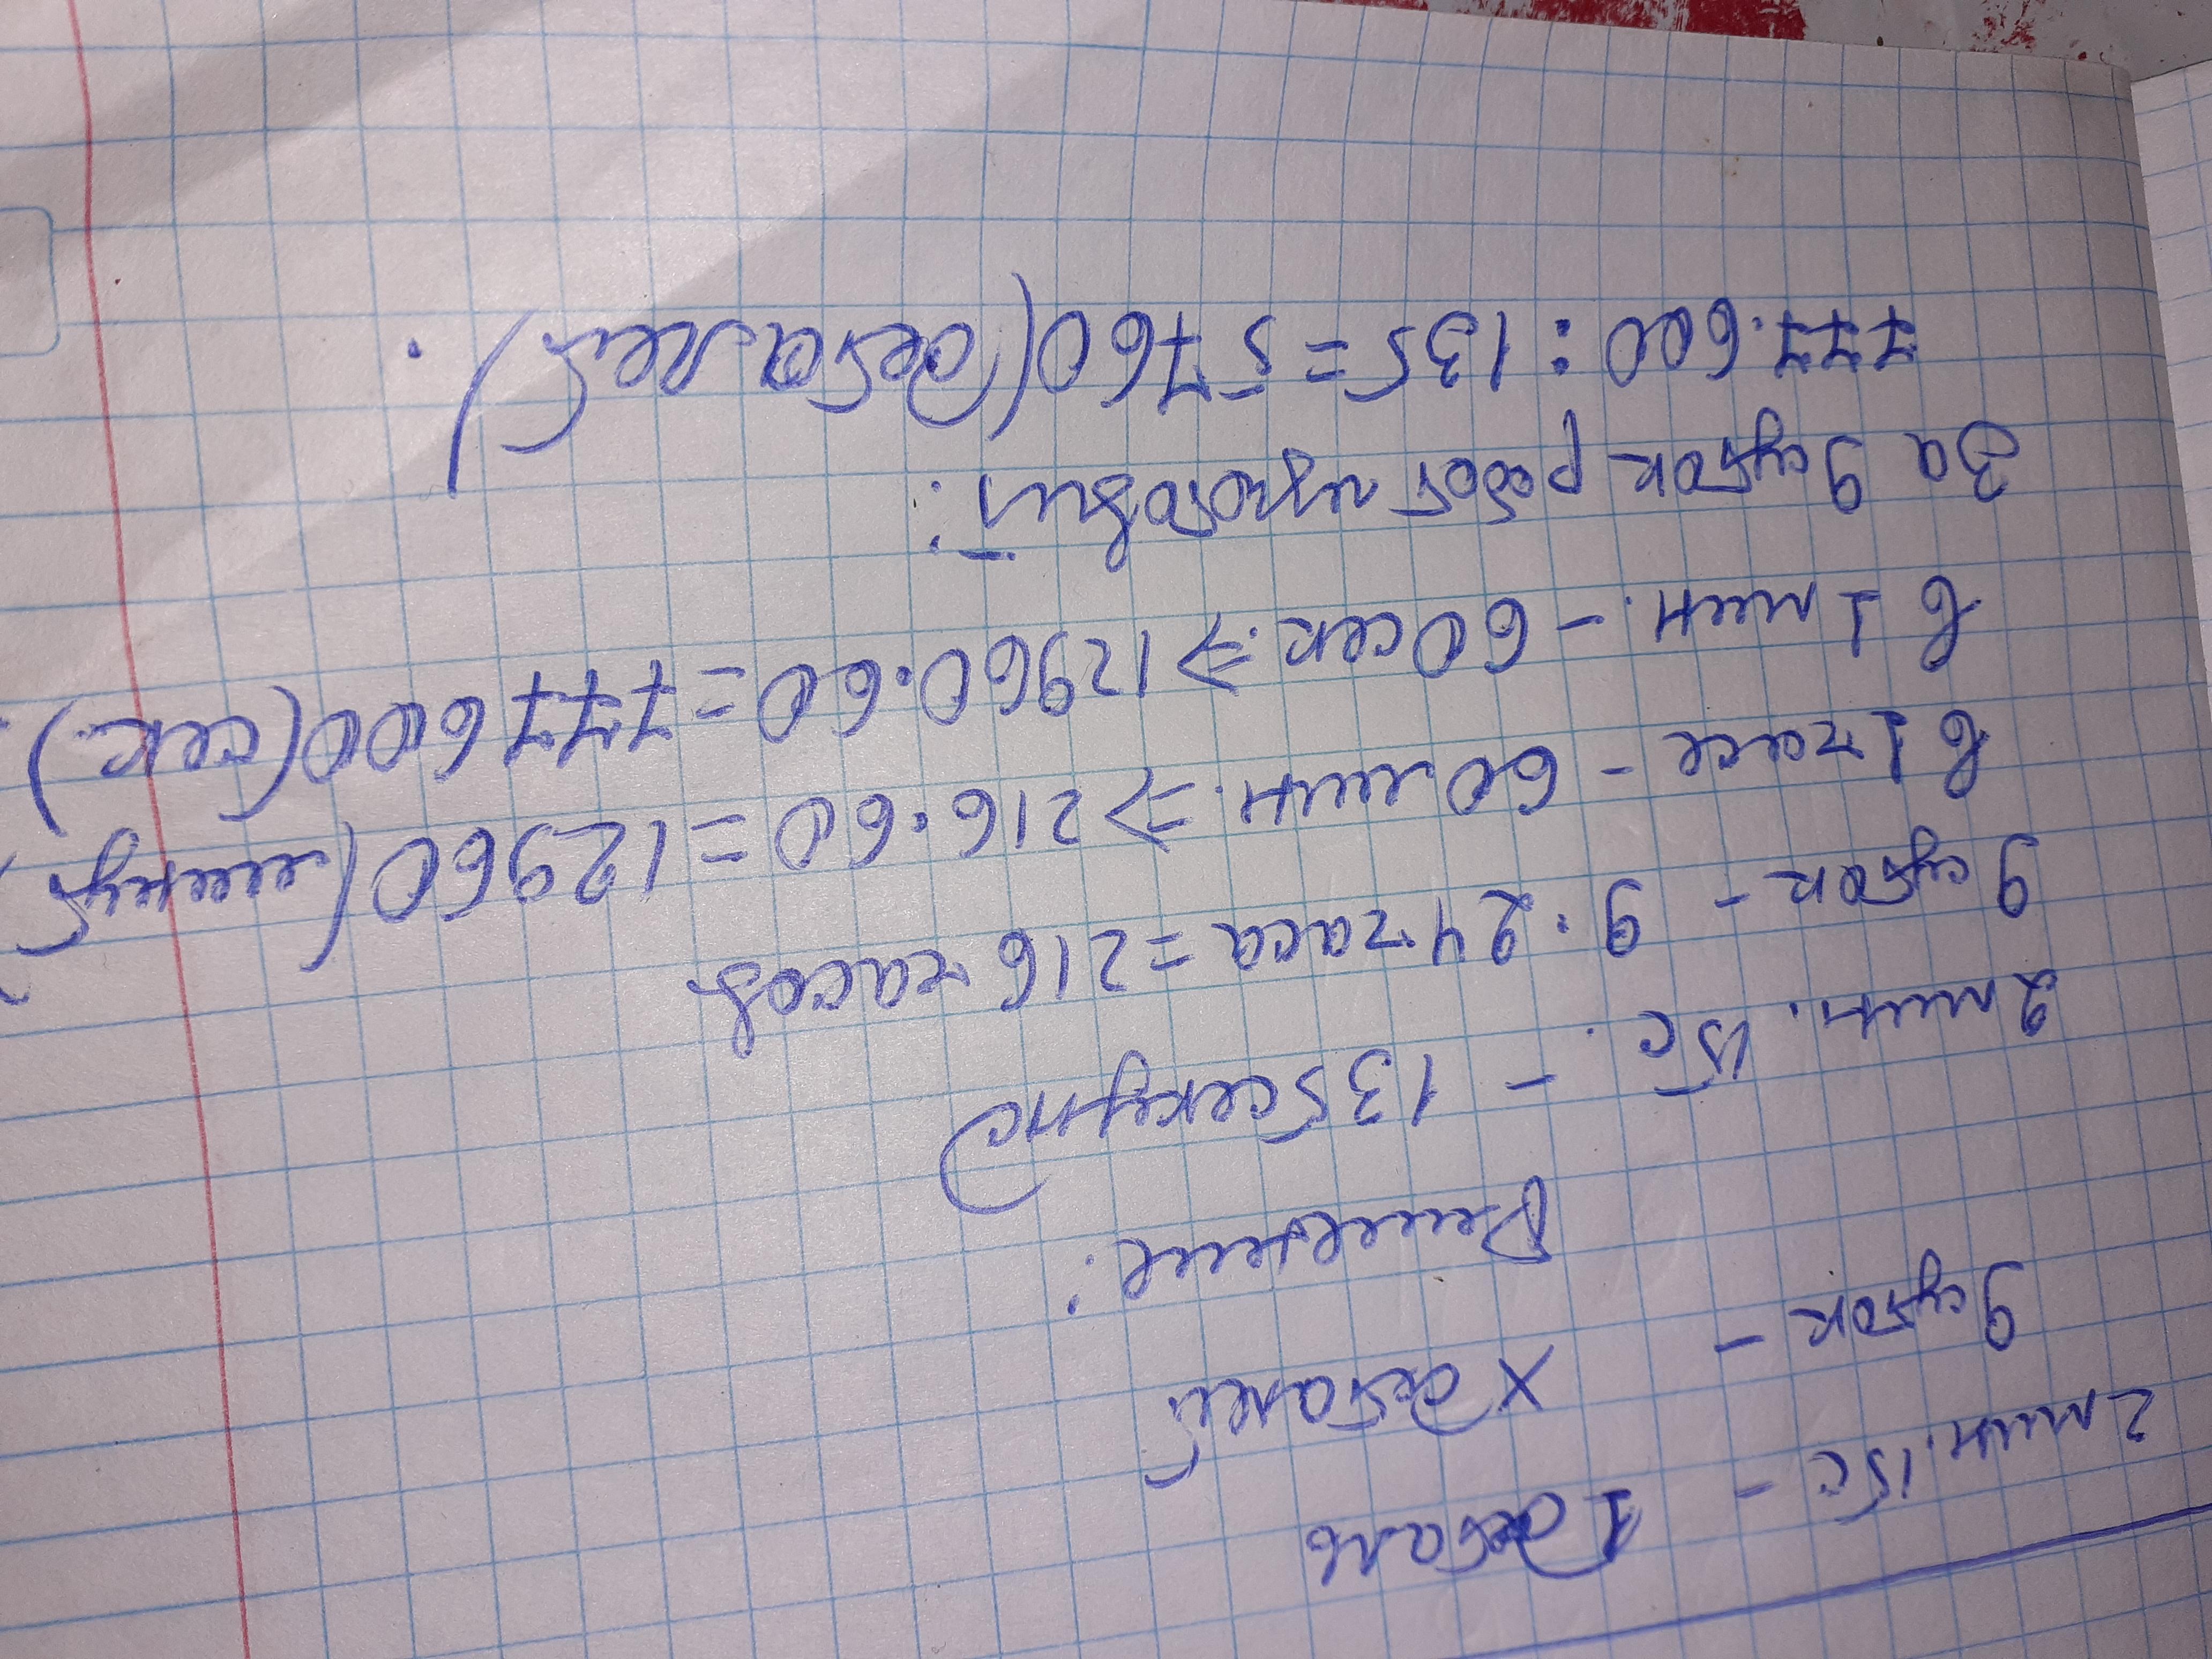 2 мин. 15с - 1 деталь
9 суток - х деталей
Решение:
2 мин. 15 с. - 135 секунд
9 суток - 9·24 часа = 216 часов
в 1 часе - 60 мин. ⇒ 216·60 = 12960 (минут)
в 1 мин. - 60 сек. ⇒ 12960·60 = 777600 (сек.)
За 9 суток робот изготовит:
777.600 : 135 = 5760 (деталей).